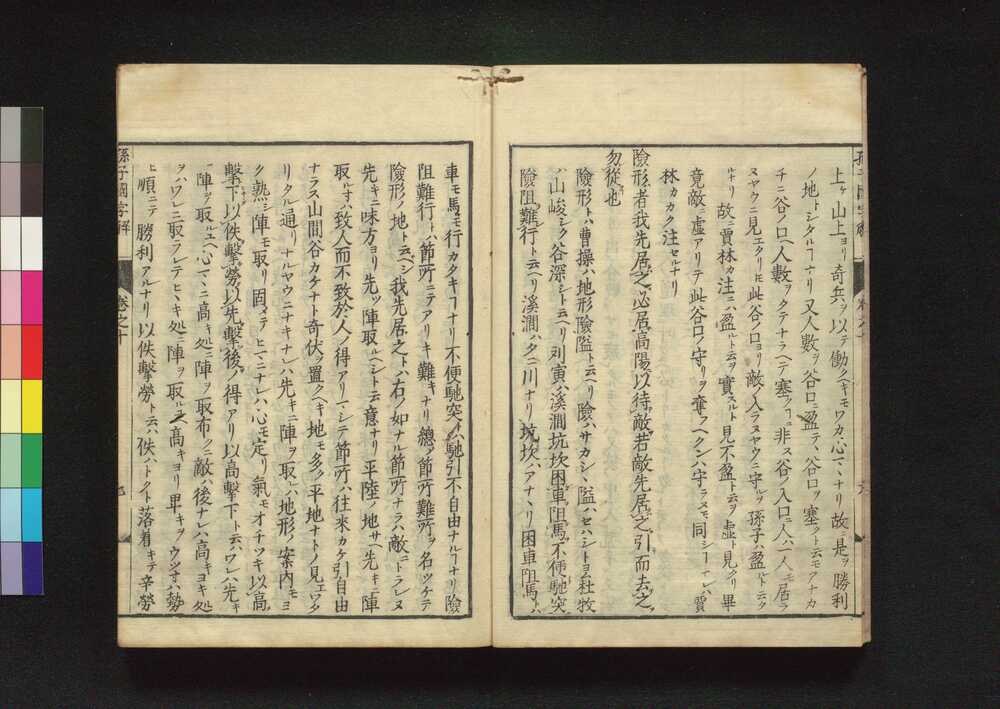 上ケ山上ヨリ奇兵ヲ以テ働クヘキモワカ心マヽナリ故ニ是ヲ勝利
ノ地トシタルコナリ又人数ヲ谷口ニ盈テ、谷口ヲ塞クト云モアナカ
チニ谷ノ口ヘ人數ヲタテナラヘテ塞クコニ非ス谷ノ入口ニ人ハ一人モ居ラ
ヌヤウニ見エタリ𪜈此谷ノ口ヨリ敵ノ入ラヌヤウニ守ルヲ孫子ハ盈ルトニタク
ルナリ故ニ賈林カ注ニハ盈ルト云ヲ實スルト見不盈ト云ヲ虚ト見タリ畢
竟敵ニ虚アリテ此谷口ノ守リヲ奪フヘクンハ守ラヌモ同シーナレハ賈
林カカク注セルナリ
險形者我先居之必居高陽以待敵若敵先居之引而去之
勿從也
險形トハ曹操ハ地形險隘ト云ヘリ險ハサカシヽ隘ハセハシトヨム杜牧
ハ山峻シク谷深シト云ヘリ刘寅ハ溪澗坑坎困車阻馬不便馳突
險阻難行ト云ヘリ溪澗ハタニ川ナリ坑坎ハアナヽリ困車阻馬トハ
孫子國字解
卷之十
九
車モ馬モ行カタキコナリ不便馳突トハ馳引不自由ナルコナリ險
阻難行トハ節所ニテアリキ難キナリ總テ節所難所ヲ名ツケテ
險形ノ地ト云ヘシ我先居之トハ右ノ如ナル節所ナラハ敵ニトラレヌ
先キニ味方ヨリ先ツ陣取ルヘシト云意ナリ平陸ノ地サヘ先キニ陣
取ルオハ致人而不致於人ノ得アリマシテ節所ハ往來カケ引自由
ナラス山間谷カケナト奇伏ヲ置クヘキ地モ多ク平地ナトノ見エワタ
リタル通リナルヤウニナキナレハ先キニ陣ヲ取ハ地形ノ案内モヨ
ク熟シ陣モ取リ固メテヒマニナレハ心モ定リ氣モオチツキ以高
擊下以佚擊勞以先擊後ノ得アリ以高擊下ト云ハワレハ先キ
陣ヲ取ルユヘ心マヽニ高キ処ニ陣ヲ取布クニ敵ハ後ナレハ高キヨキ処
ヲハワレニ取ラレテヒキヽ処ニ陣ヲ取ルユヘ高キヨリ卑キヲウツオハ勢
ヒ順ニテ勝利アルナリ以佚擊勞ト云ハ佚ハトクト落着キテ辛勞